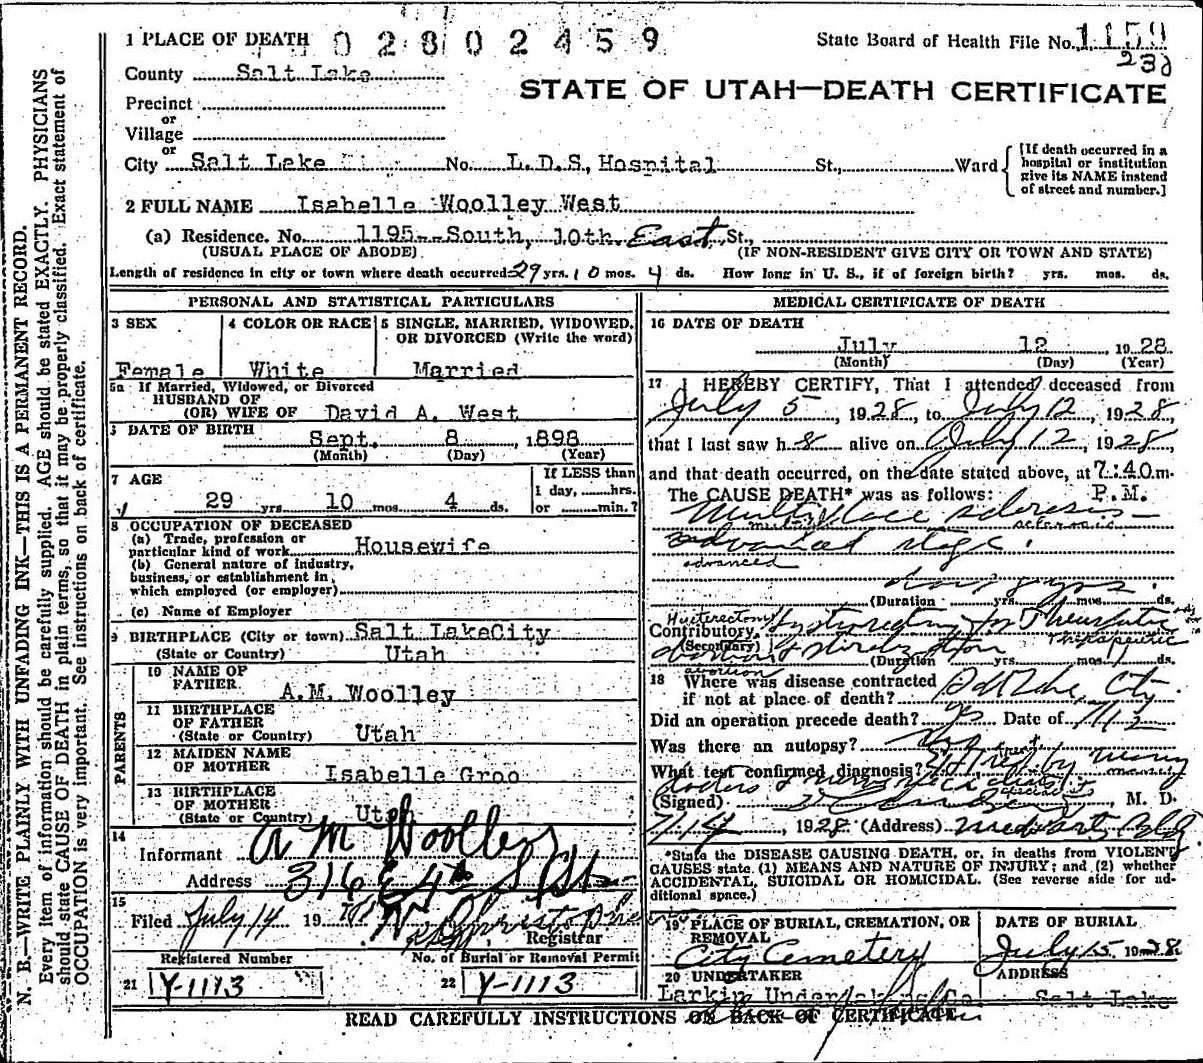 1 PLACE OF DEATH 02802459 State Board of Health File No. 1159
232
County Salt Lake
STATE OF UTAH—DEATH CERTIFICATE
Precinct
or
Village
or
City Salt Lake No. L.D.S, Hospital St., Ward
[If death occurred in a hospital or institution give its NAME instead of street and number.]
2 FULL NAME Isabelle Woolley West
(a) Residence. No. 1195--South, 10th East St.,
(USUAL PLACE OF ABODE) (IF NON-RESIDENT GIVE CITY OR TOWN AND STATE)
Length of residence in city or town where death occurred 29 yrs. 10 mos. 4 ds. How long in U. S., if of foreign birth? yrs. mos. ds.
PERSONAL AND STATISTICAL PARTICULARS
3 SEX 4 COLOR OR RACE 5 SINGLE, MARRIED, WIDOWED,
OR DIVORCED (Write the word)
Female White Married
5a If Married, Widowed, or Divorced
HUSBAND OF
(OR) WIFE OF David A. West
DATE OF BIRTH
Sept. 8, 1898
(Month) (Day) (Year)
7 AGE
29 yrs 10 mos 4 ds.
If LESS than
1 day, hrs.
or min.?
8 OCCUPATION OF DECEASED
(a) Trade, profession or
particular kind of work Housewife
(b) General nature of industry,
business, or establishment in
which employed (or employer)
(c) Name of Employer
9 BIRTHPLACE (City or town) Salt LakeCity
(State or Country) Utah
PARENTS
10 NAME OF
FATHER A.M. Woolley
11 BIRTHPLACE
OF FATHER
(State or Country) Utah
12 MAIDEN NAME
OF MOTHER Isabelle Groo
13 BIRTHPLACE
OF MOTHER
(State or Country) Utah
14
Informant A M Woolley
Address 316 E 4th S St
15
Filed July 14 19
Registrar
Registered Number No. of Burial or Removal Permit
21 Y-1113 22 Y-1113
MEDICAL CERTIFICATE OF DEATH
16 DATE OF DEATH
July 12 1928
(Month) (Day) (Year)
17 I HEREBY CERTIFY, That I attended deceased from
July 5, 1928, to July 12, 1928,
that I last saw h alive on July 12, 1928,
and that death occurred, on the date stated above, at 7:40 m.
The CAUSE DEATH* was as follows: P.M.
Multiplace sclerosis
advanced stage.
advanced
(Duration yrs mos. ds.
Contributory for Therapeutic
(Secondary) Therapeutic
(Duration yrs. mos. ds.
abortion
18 Where was disease contracted
if not at place of death? Salt Lake City
Did an operation precede death? yes Date of 7/12
Was there an autopsy?
What test confirmed diagnosis? by many
doctors
(Signed) , M. D.
7/14, 1928 (Address) Med arts Bldg
*State the DISEASE CAUSING DEATH, or, in deaths from VIOLENT
CAUSES state (1) MEANS AND NATURE OF INJURY; and (2) whether
ACCIDENTAL, SUICIDAL OR HOMICIDAL. (See reverse side for ad-
ditional space.)
19 PLACE OF BURIAL, CREMATION, OR
REMOVAL
City Cemetery
DATE OF BURIAL
July 15 1928
20 UNDERTAKER ADDRESS
Larkin Undertaking Co. Salt Lake
READ CAREFULLY INSTRUCTIONS ON BACK OF CERTIFICATE
N. B.—WRITE PLAINLY WITH UNFADING INK—THIS IS A PERMANENT RECORD.
Every item of information should be carefully supplied. AGE should be stated EXACTLY. PHYSICIANS
should state CAUSE OF DEATH in plain terms, so that it may be properly classified. Exact statement of
OCCUPATION is very important. See instructions on back of certificate.